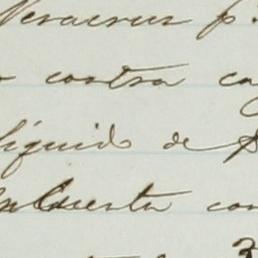 Veracruz p.
contra ca
líquido de $
cuenta con
3